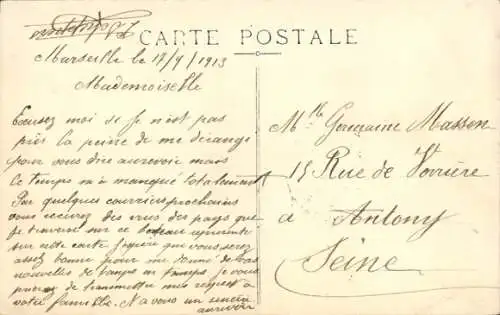 CARTE POSTALE
Marseille le 17/9/1913
Mademoiselle
Excusez moi de Je n'est pas
pris la peine de me dérangé
pour vous dire aurevoir mais
le temps m'a manqué totalement
Par quelques courriers prochains
vous recevrez des vues des pays que
Je trouve sur ce
sur cette carte J'éspère que vous serez
assez bonne pour me donné de vos
nouvelles de temps en temps Je vous
prierez de transmettre mes respect à
votre famille. N'a vous un sincère
aurevoir
Mlle Germaine Masson
15 Rue de Verrière
à Antony
Seine